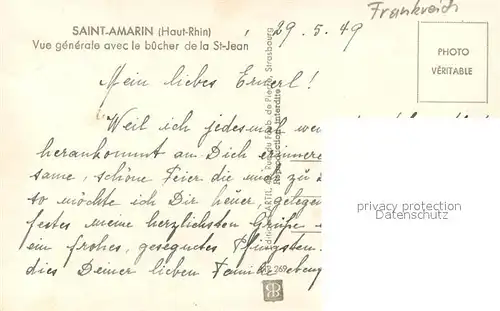 Frankreich
SAINT-AMARIN (Haut-Rhin)
Vue générale avec le bûcher de la St-Jean
29. 5. 49
PHOTO
VÉRITABLE
Mein liebes Ernerl!
Weil ich jedesmal wen
herankommt an Dich erinnere
same, schöne Feier die mich zu
so möchte ich Dir heuer, gelegen
festes meine herzlichsten Grüße
ein frohes, gesegnetes Pfingsten.
dies Deiner lieben Familie ebeng
Rue du Fbg. de Pierre, Strasbourg
Reproduction interdite
privacy protection
Datenschutz